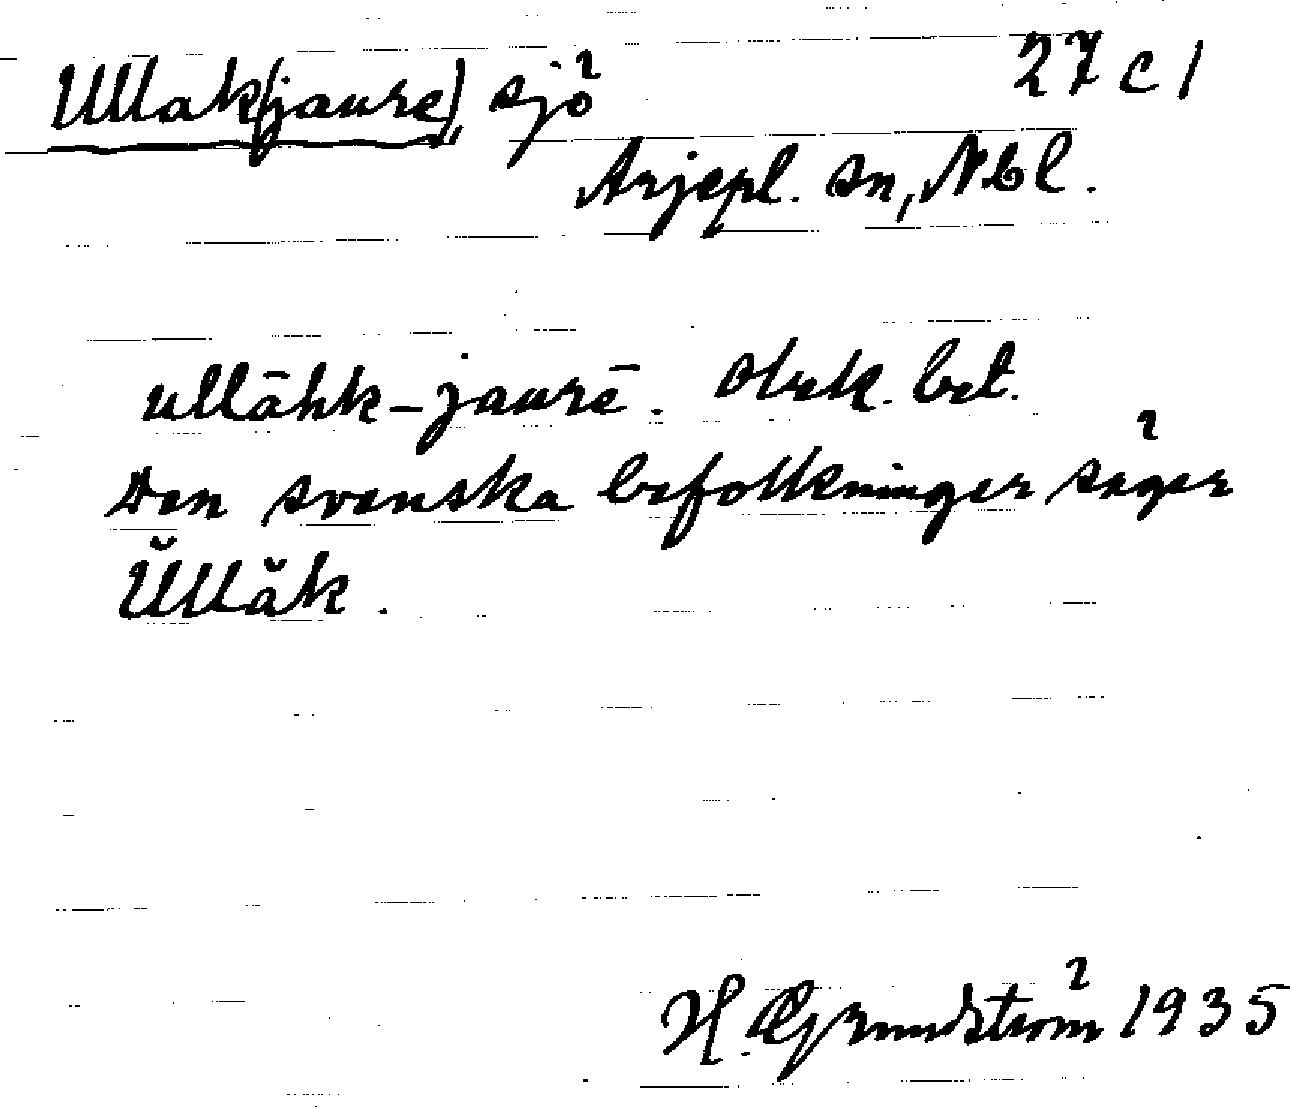 Ullak(jaure), sjö 27 c 1
Arjepl. sn, Nbl.
ullāhk-jaurē. Obek. bet.
Den svenska befolkningen säger
Ŭllăk.
H. Grundström 1935